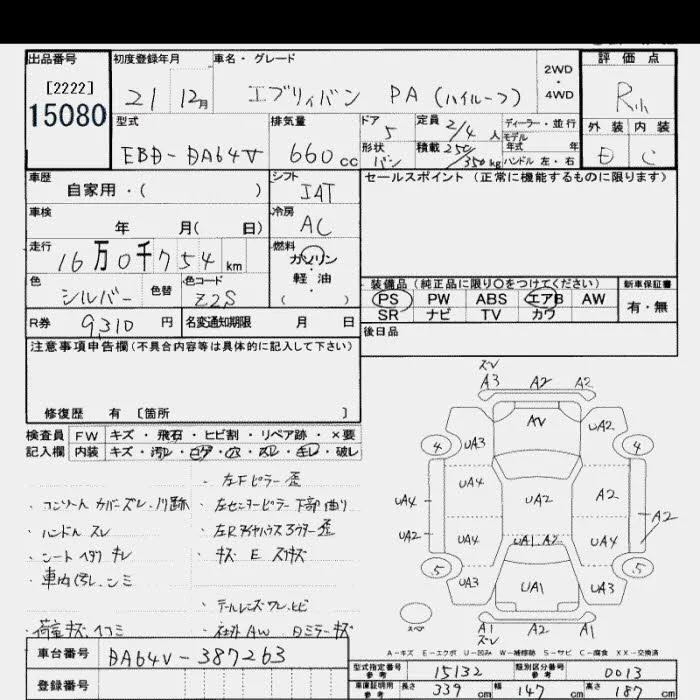 出品番号
[2222]
15080
初度登録年月
21 12月
車名・グレード
エブリィバン PA (ハイルーフ)
2WD
・
4WD
評価点
外装 内装
D C
型式
EBD-DA64V
排気量
660cc
ドア
5
形状
バン
定員
2/4人
積載
250/350kg
ディーラー・並行
モデル
年式 年
ハンドル 左・右
車歴
自家用・( )
シフト
IAT
セールスポイント(正常に機能するものに限ります)
車検
年 月( 日)
冷房
AC
走行
16万0千754km
燃料
ガソリン
・
軽油
( )
色
シルバー
色替
色コード
Z2S
装備品(純正品に限り〇をつけてください)
PS PW ABS エアB AW
SR ナビ TV カワ
新車保証書
有・無
R券
9,310円
名変通知期限 月 日
後日品
注意事項申告欄(不具合内容等は具体的に記入して下さい)
修復歴 有 [箇所 ]
検査員 FW キズ・飛石・ヒビ割・リペア跡・×要
記入欄 内装 キズ・汚レ・コゲ・穴・スレ・キレ・破レ
・左Fピラー歪
・左センターピラー下部曲り
・ハンドルスレ
・シート ヘタリ キレ
・キズ E
・テールレンズワレ、ヒビ
・社外AW
荷室キズ、ヘコミ
ズレ
A3 A2 A2
AV
UA3 UA2
4 4
UA4 UA4 UA2 A2
UA2 UA4 UA1.A2 UA4 A2
5 5
UA3 UA1 UA3
A1 A2 A1
ズレ
A-キズ E-エクボ U-凹み W-補修跡 S-サビ C-腐食 XX-交換済
車台番号
DA64V-387263
登録番号
型式指定番号
参考
15132
類別区分番号
参考
0013
車庫証明用
参考
長さ 339cm 幅 147cm 高さ 187cm